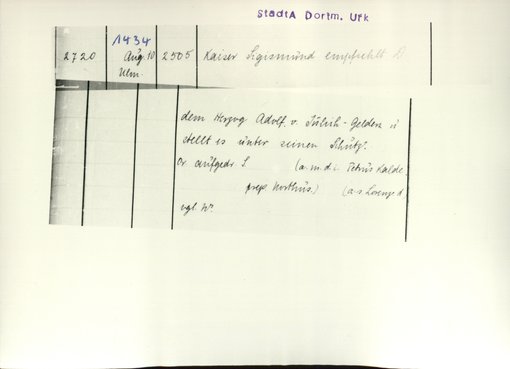 StadtA Dortm. Urk
1434
2720 Aug 10 2505 Kaiser Sigismund empfiehlt D
Ulm
dem Herzog Adolf v. Jülich-Geldern u
stellt es unter seinen Schutz.
Or aufgedr S (a. m. d. i. Petrus Kalde
prepo Northus.) (a. s. Lorenz d
vgl. Nr.